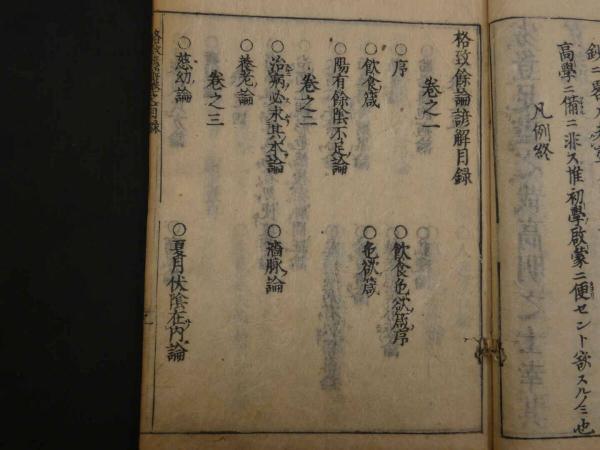 高學ニ備ニ非ス惟初學啟蒙ニ便セント欲スルノミ也
凡例終
格致餘論諺解目録
卷之一
○序 ○飲食色欲箴序
○飲食箴 ○色欲箴
○陽有餘陰不足論
卷之二
○治病必求其本論 ○濇脉論
○養老論
卷之三
○慈幼論 ○夏月伏陰在内論